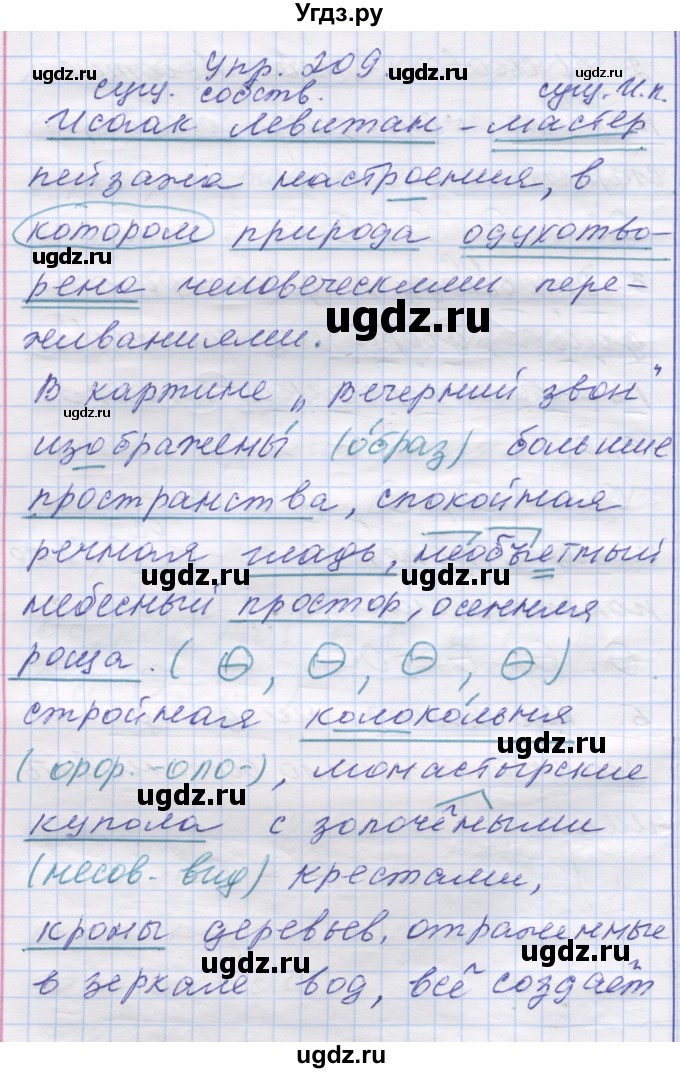 Угдз.ру
Упр. 209.
сущ. собств. сущ. И.п.
Исаак Левитан – мастер
пейзажа настроения, в
котором природа одухотво-
рена человеческими пере-
живаниями.
В картине „Вечерний звон"
изображены (образ) большие
пространства, спокойная
речная гладь, необъетный
небесный простор, осенняя
роща. ( , , , )
стройная колокольня
(орор.-оло-), монастырские
купола с золочёными
(несов. вид) крестами,
кроны деревьев, отраженные
в зеркале вод, всё создаёт
ugdz.ru
ugdz.ru
ugdz.ru
ugdz.ru
ugdz.ru
ugdz.ru
ugdz.ru
ugdz.ru
ugdz.ru
ugdz.ru
ugdz.ru
ugdz.ru
ugdz.ru
ugdz.ru